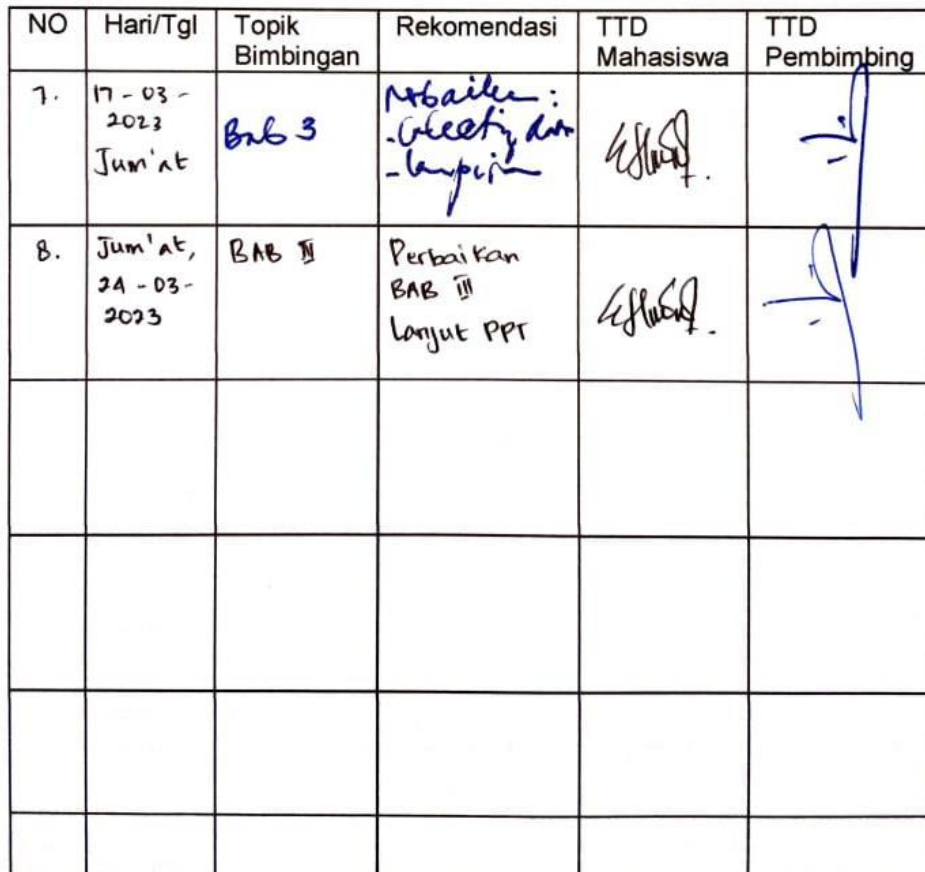 NO Hari/Tgl Topik Bimbingan Rekomendasi TTD Mahasiswa TTD Pembimbing
7.
17-03-
2023
Jum'at
Bab 3
:
-
- lampiran
8.
Jum'at,
24-03-
2023
BAB III
Perbaikan
BAB III
Lanjut PPT